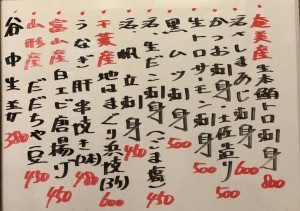 奄美産生本鮪トロ刺身 800
活〆さまあじ刺身 600
かつお刺身 土佐造り 600
生トロサーモン刺身 500
黒ムツ刺身 500
活生だこ刺身(ごま塩) 500
活帆立刺身 450
千葉産地はまぐり浜焼(3ヶ) 600
うなぎ肝串焼き(1本) 480
富山産白エビ唐揚げ 450
山形産だだちゃ豆 450
谷中生姜 380